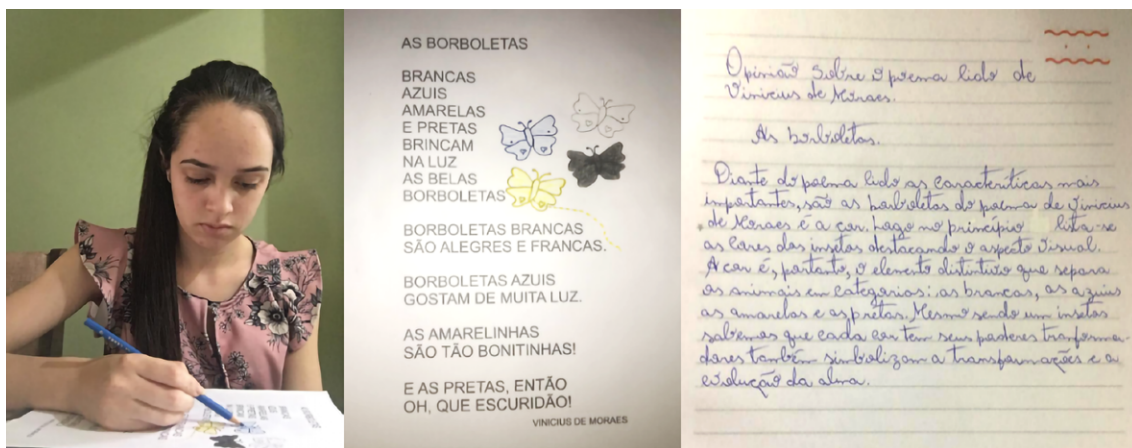 AS BORBOLETAS
BRANCAS
AZUIS
AMARELAS
E PRETAS
BRINCAM
NA LUZ
AS BELAS
BORBOLETAS
BORBOLETAS BRANCAS
SÃO ALEGRES E FRANCAS.
BORBOLETAS AZUIS
GOSTAM DE MUITA LUZ.
AS AMARELINHAS
SÃO TÃO BONITINHAS!
E AS PRETAS, ENTÃO
OH, QUE ESCURIDÃO!
VINICIUS DE MORAES
Opinião sobre o poema lido de
Vinicius de Moraes.
As borboletas.
Diante do poema lido as caracteríticas mais
importantes, são as borboletas do poema de Vinicius
de Moraes é a cor. Logo no princípio lista-se
as cores dos insetos destacando o aspecto visual.
A cor é, portanto, o elemento distintivo que separa
os animais em categorias: as brancas, as azuis
as amarelas e as pretas. Mesmo sendo um insetos
sabemos que cada cor tem seus poderes tranforma-
dores também simbolizam a transformações e a
evolução da alma.